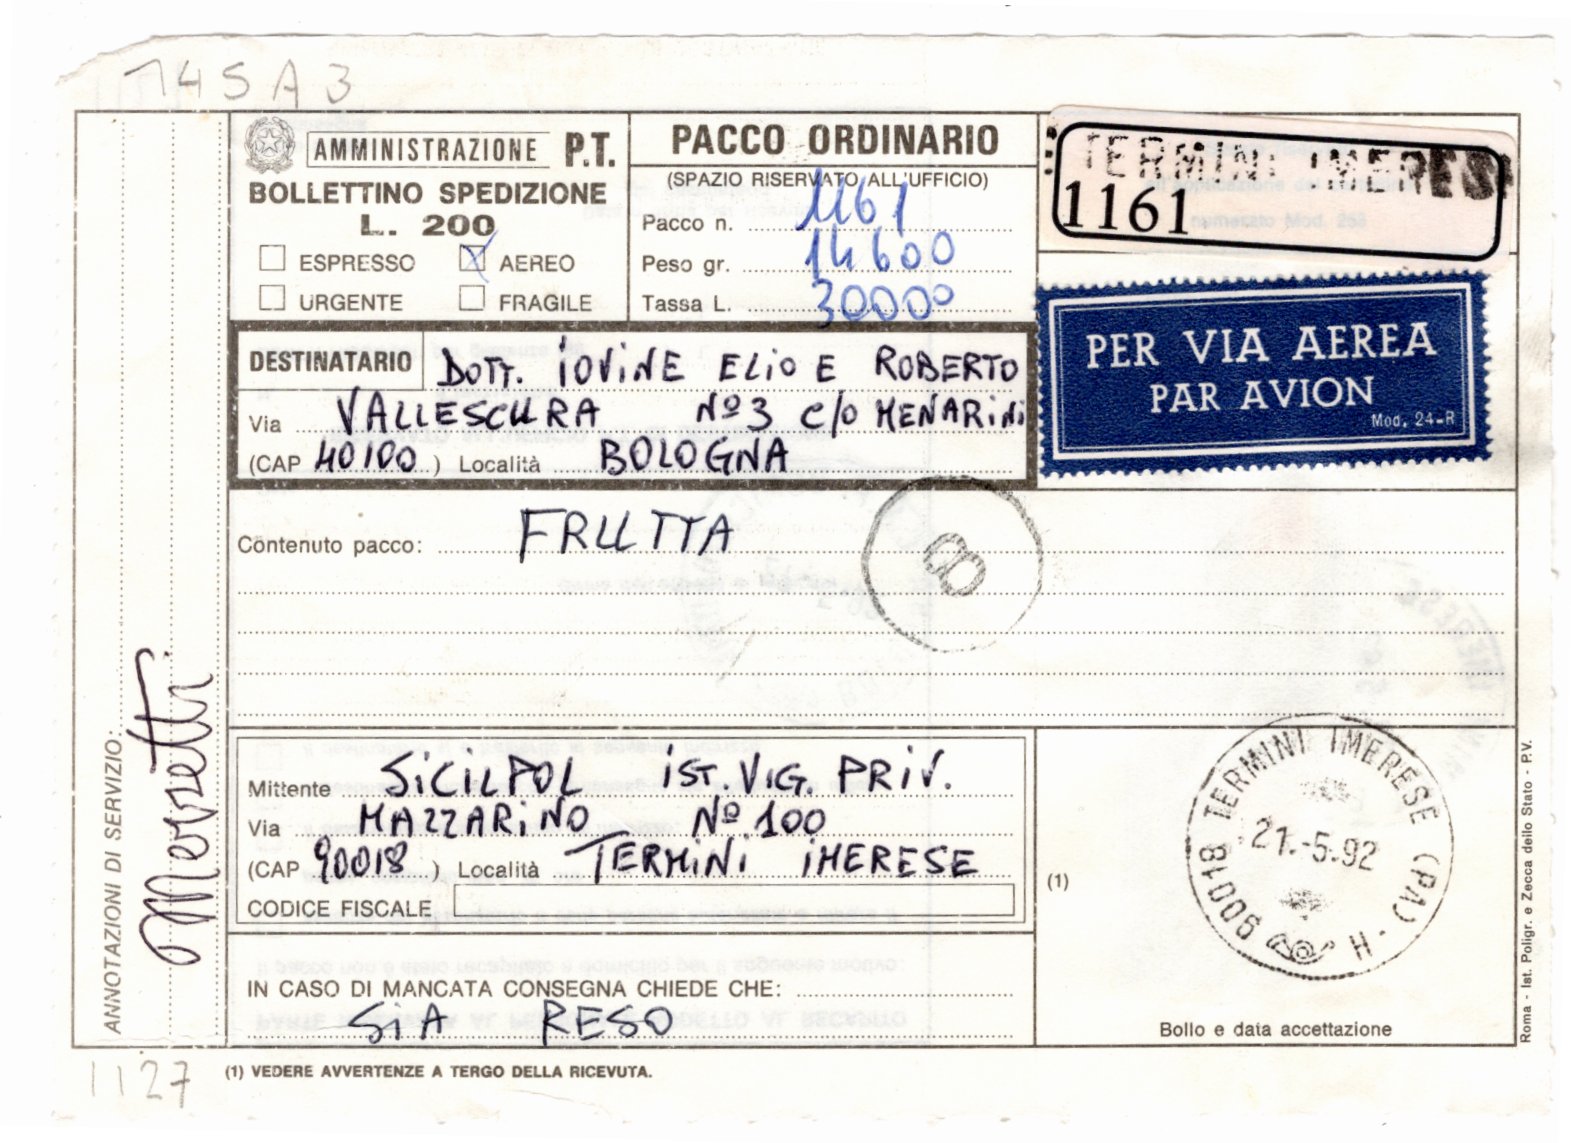 745A3
AMMINISTRAZIONE P.T.
BOLLETTINO SPEDIZIONE
L. 200
ESPRESSO AEREO
URGENTE FRAGILE
PACCO ORDINARIO
(SPAZIO RISERVATO ALL'UFFICIO)
Pacco n. 1161
Peso gr. 14600
Tassa L. 30000
TERMINI IMERESE
1161
PER VIA AEREA
PAR AVION
Mod. 24-R
DESTINATARIO DOTT. IOVINE ELIO E ROBERTO
Via VALLESCURA Nº3 c/o MENARINI
(CAP 40100) Località BOLOGNA
Contenuto pacco: FRUTTA
8
Mittente SICILPOL IST. VIG. PRIV.
Via MAZZARINO Nº 100
(CAP 90018) Località TERMINI IMERESE
CODICE FISCALE
IN CASO DI MANCATA CONSEGNA CHIEDE CHE:
SIA RESO
(1)
90018 TERMINI IMERESE (PA) - H
21.-5.92
Bollo e data accettazione
ANNOTAZIONI DI SERVIZIO:
Roma - Ist. Poligr. e Zecca dello Stato - P.V.
1127
(1) VEDERE AVVERTENZE A TERGO DELLA RICEVUTA.